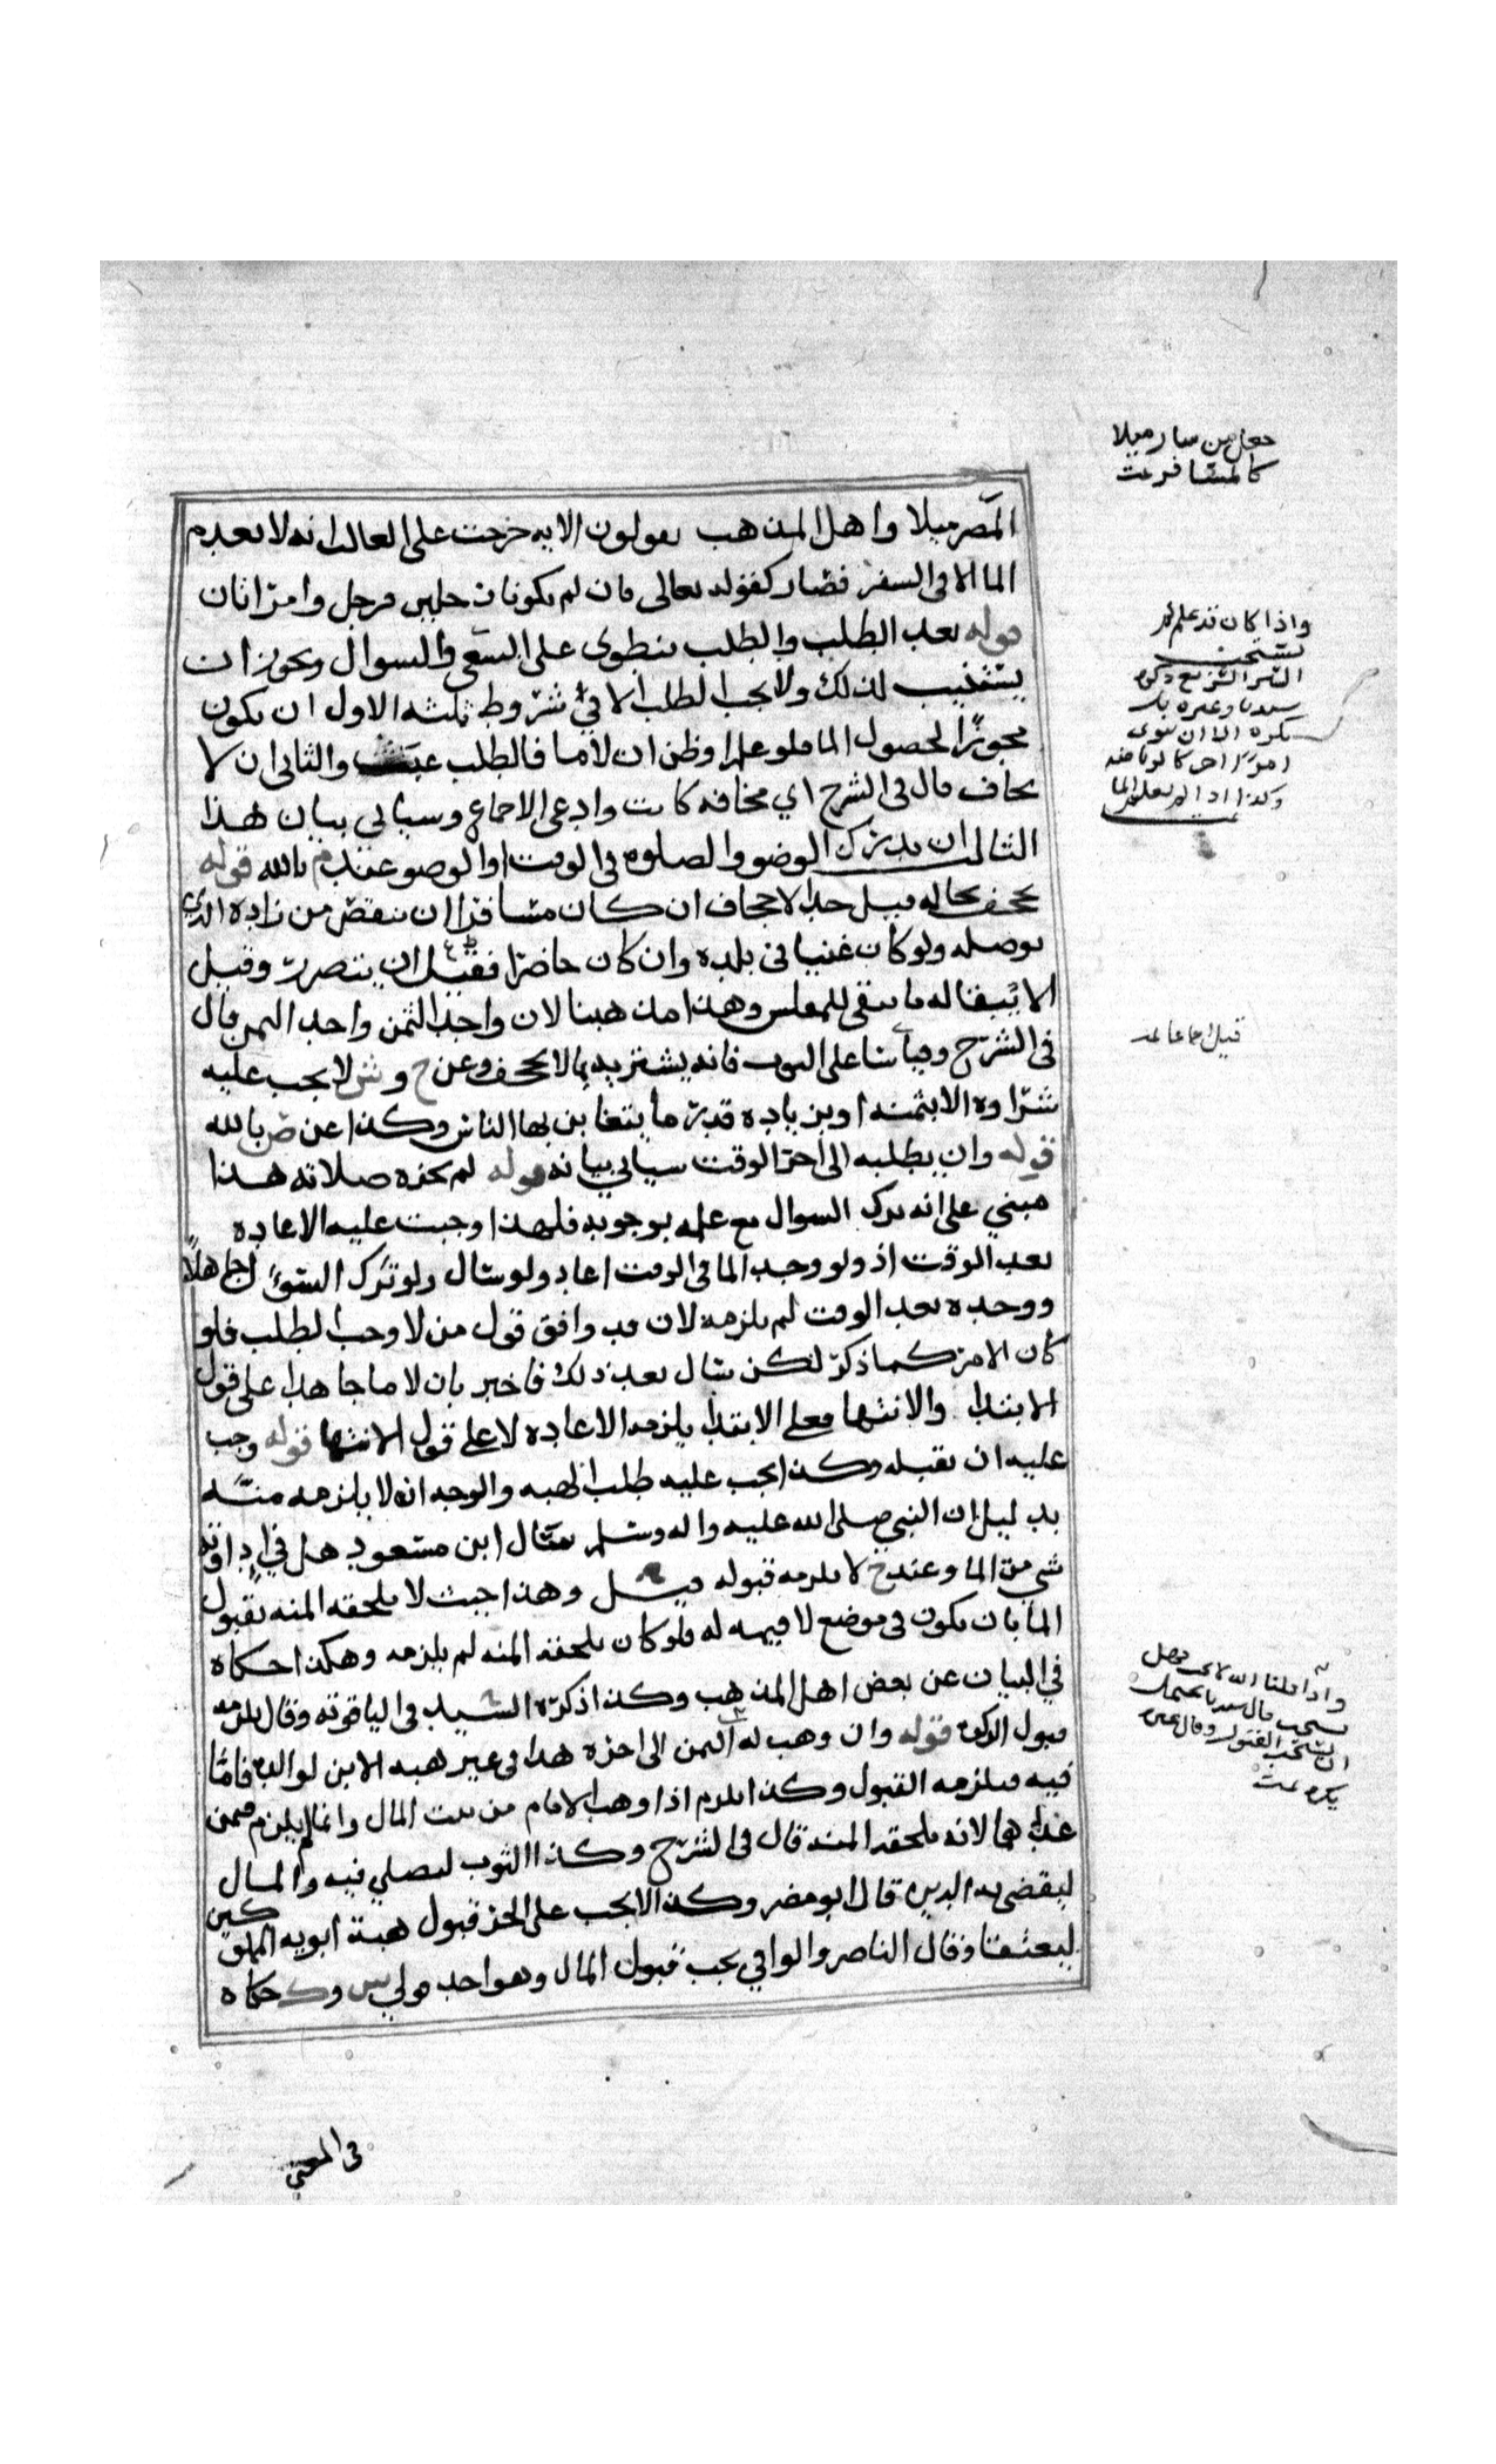 المصر ميلا واهل المذهب يقولون الايه خرجت على الغالب انه لا يعدم
الما الا في السفر فصار كقوله تعالى فان لم يكونا رجلين فرجل وامراتان
قوله بعد الطلب والطلب ينطوى على السعي والسوال ويجوز ان
يستنيب لذلك ولا يجب الطلب الا في شروط ثلثه الاول ان يكون
مجوزا لحصول الما فلو علم او ظن ان لا ما فالطلب عبث والثاني ان لا
يخاف قال في الشرح اي مخافه كانت وادعى الاجماع وسياتي بيان هذا
الثالث ان يدرك الوضو والصلوه في الوقت او الوضو عند م بالله قوله
يجحف بحاله قيل حد الاجحاف ان كان مسافرا ان ينقص من زاده الذي
يوصله ولو كان غنيا في بلده وان كان حاضرا فقيل ان يتضرر وقيل
الا يبقا له ما يبقى للمفلس وهذا مذهبنا لان واجد الثمن واجد المثمن قال
في الشرح وقياسا على الثوب فانه يشتريه بما لا يجحف وعن ح وش لا يجب عليه
شراوه الا بثمنه او بزياده قدر ما يتغابن بها الناس وكذا عن ض بالله
قوله وان يطلبه الى اخر الوقت سياتي بيانه قوله لم يجزه صلاته هذا
مبني على انه ترك السوال مع علمه بوجوبه فلهذا وجبت عليه الاعاده
بعد الوقت اذ ولو وجد الما في الوقت اعاد ولو سال ولو ترك السؤال جاهلا
ووجده بعد الوقت لم يلزمه لان قد وافق قول من لا وجب الطلب فلو
كان الامر كما ذكر لكن سال بعد ذلك فاخبر بان لا ما جا هذا على قول
الابتدا والانتها فعلى الابتدا يلزمه الاعاده لا على قول الانتها قوله وجب
عليه ان يقبله وكذا يجب عليه طلب الهبه والوجه انه لا يلزمه منته
بدليل ان النبي صلى الله عليه واله وسلم سال ابن مسعود هل في اداوته
شي من الما وعند خ لا يلزمه قبوله قيل وهذا حيث لا يلحقه المنه بقبول
الما بان يكون في موضع لا قيمه له فلو كان يلحقه المنه لم يلزمه وهكذا حكاه
في البيان عن بعض اهل المذهب وكذا ذكره السيد في الياقوته وقال يلزمه
قبول الدلو قوله وان وهب له الثمن الى اخره هذا في غير هبه الابن لوالده فاما
فيه فيلزمه القبول وكذا يلزم اذا وهب الامام من بيت المال وانما لم يلزم فمن
عداهما لانه يلحقه المنه قال في الشرح وكذا الثوب ليصلي فيه والمال
ليقضى به الدين قال ابو مضر وكذا لا يجب على الحر قبول هبة ابويه المملوكين
ليعتقا وقال الناصر والوافي يجب قبول المال وهو احد قولي ش وك حكاه
في المغني
جعل من سار ميلا
كالمسافر تمت
واذا كان قد علم لم
يستحب
سيدنا وغيره بل
يكره الا ان ينوى
قيل اجماعا تمت
واذا قلنا انه لا يجب فهل
يستحب قال سيدنا يحتمل
ان يستحب القبول وقال غيره
يكره تمت